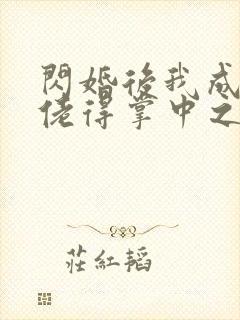 閃婚後我成
佬得掌中之
莊紅韜